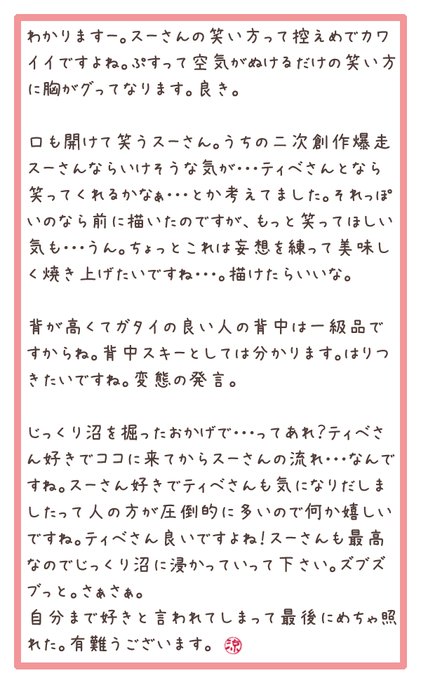 わかりますー。スーさんの笑い方って控えめでカワ
イイですよね。ぷすって空気がぬけるだけの笑い方
に胸がグッてなります。良き。
口も開けて笑うスーさん。うちの二次創作爆走
スーさんならいけそうな気が・・・ティべさんとなら
笑ってくれるかなぁ・・・とか考えてました。それっぽ
いのなら前に描いたのですが、もっと笑ってほしい
気も・・・うん。ちょっとこれは妄想を練って美味し
く焼き上げたいですね・・・。描けたらいいな。
背が高くてガタイの良い人の背中は一級品で
すからね。背中スキーとしては分かります。はりつ
きたいですね。変態の発言。
じっくり沼を掘ったおかげで・・・ってあれ?ティべさ
ん好きでココに来てからスーさんの流れ・・・なんで
すね。スーさん好きでティべさんも気になりだしま
したって人の方が圧倒的に多いので何か嬉しい
ですね。ティべさん良いですよね!スーさんも最高
なのでじっくり沼に浸かっていって下さい。ズブズ
ブっと。さぁさぁ。
自分まで好きと言われてしまって最後にめちゃ照
れた。有難うございます。